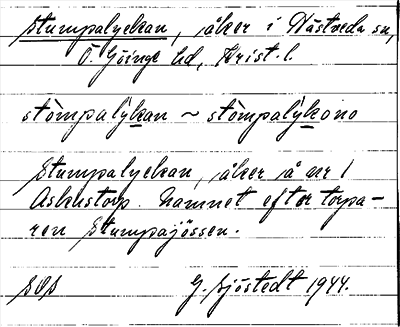 Stumpalyckan, åker i Nästveda sn,
Ö. Göinge hd, Krist. l.
stòmpalỳkan ~ stòmpalỳkono
Stumpalyckan, åker å nr 1
Askustorp. Namnet efter torpa-
ren Stumpajössen.
SOS G. Sjöstedt 1944.